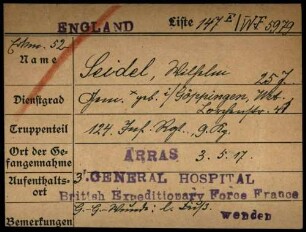 ENGLAND Liste 147 E/ W-F 5979
52
Name Seidel, Wilhelm
25 J
Dienstgrad Gem. geb. i/ Göppingen,
Truppenteil 124. Inf. Rgt., 9. Kp.
Ort der Gefangennahme ARRAS 3. 5. 17.
Aufenthaltsort 3' GENERAL HOSPITAL
British Expeditionary Force France
G.-G.-Wunde: l.
wenden
Bemerkungen